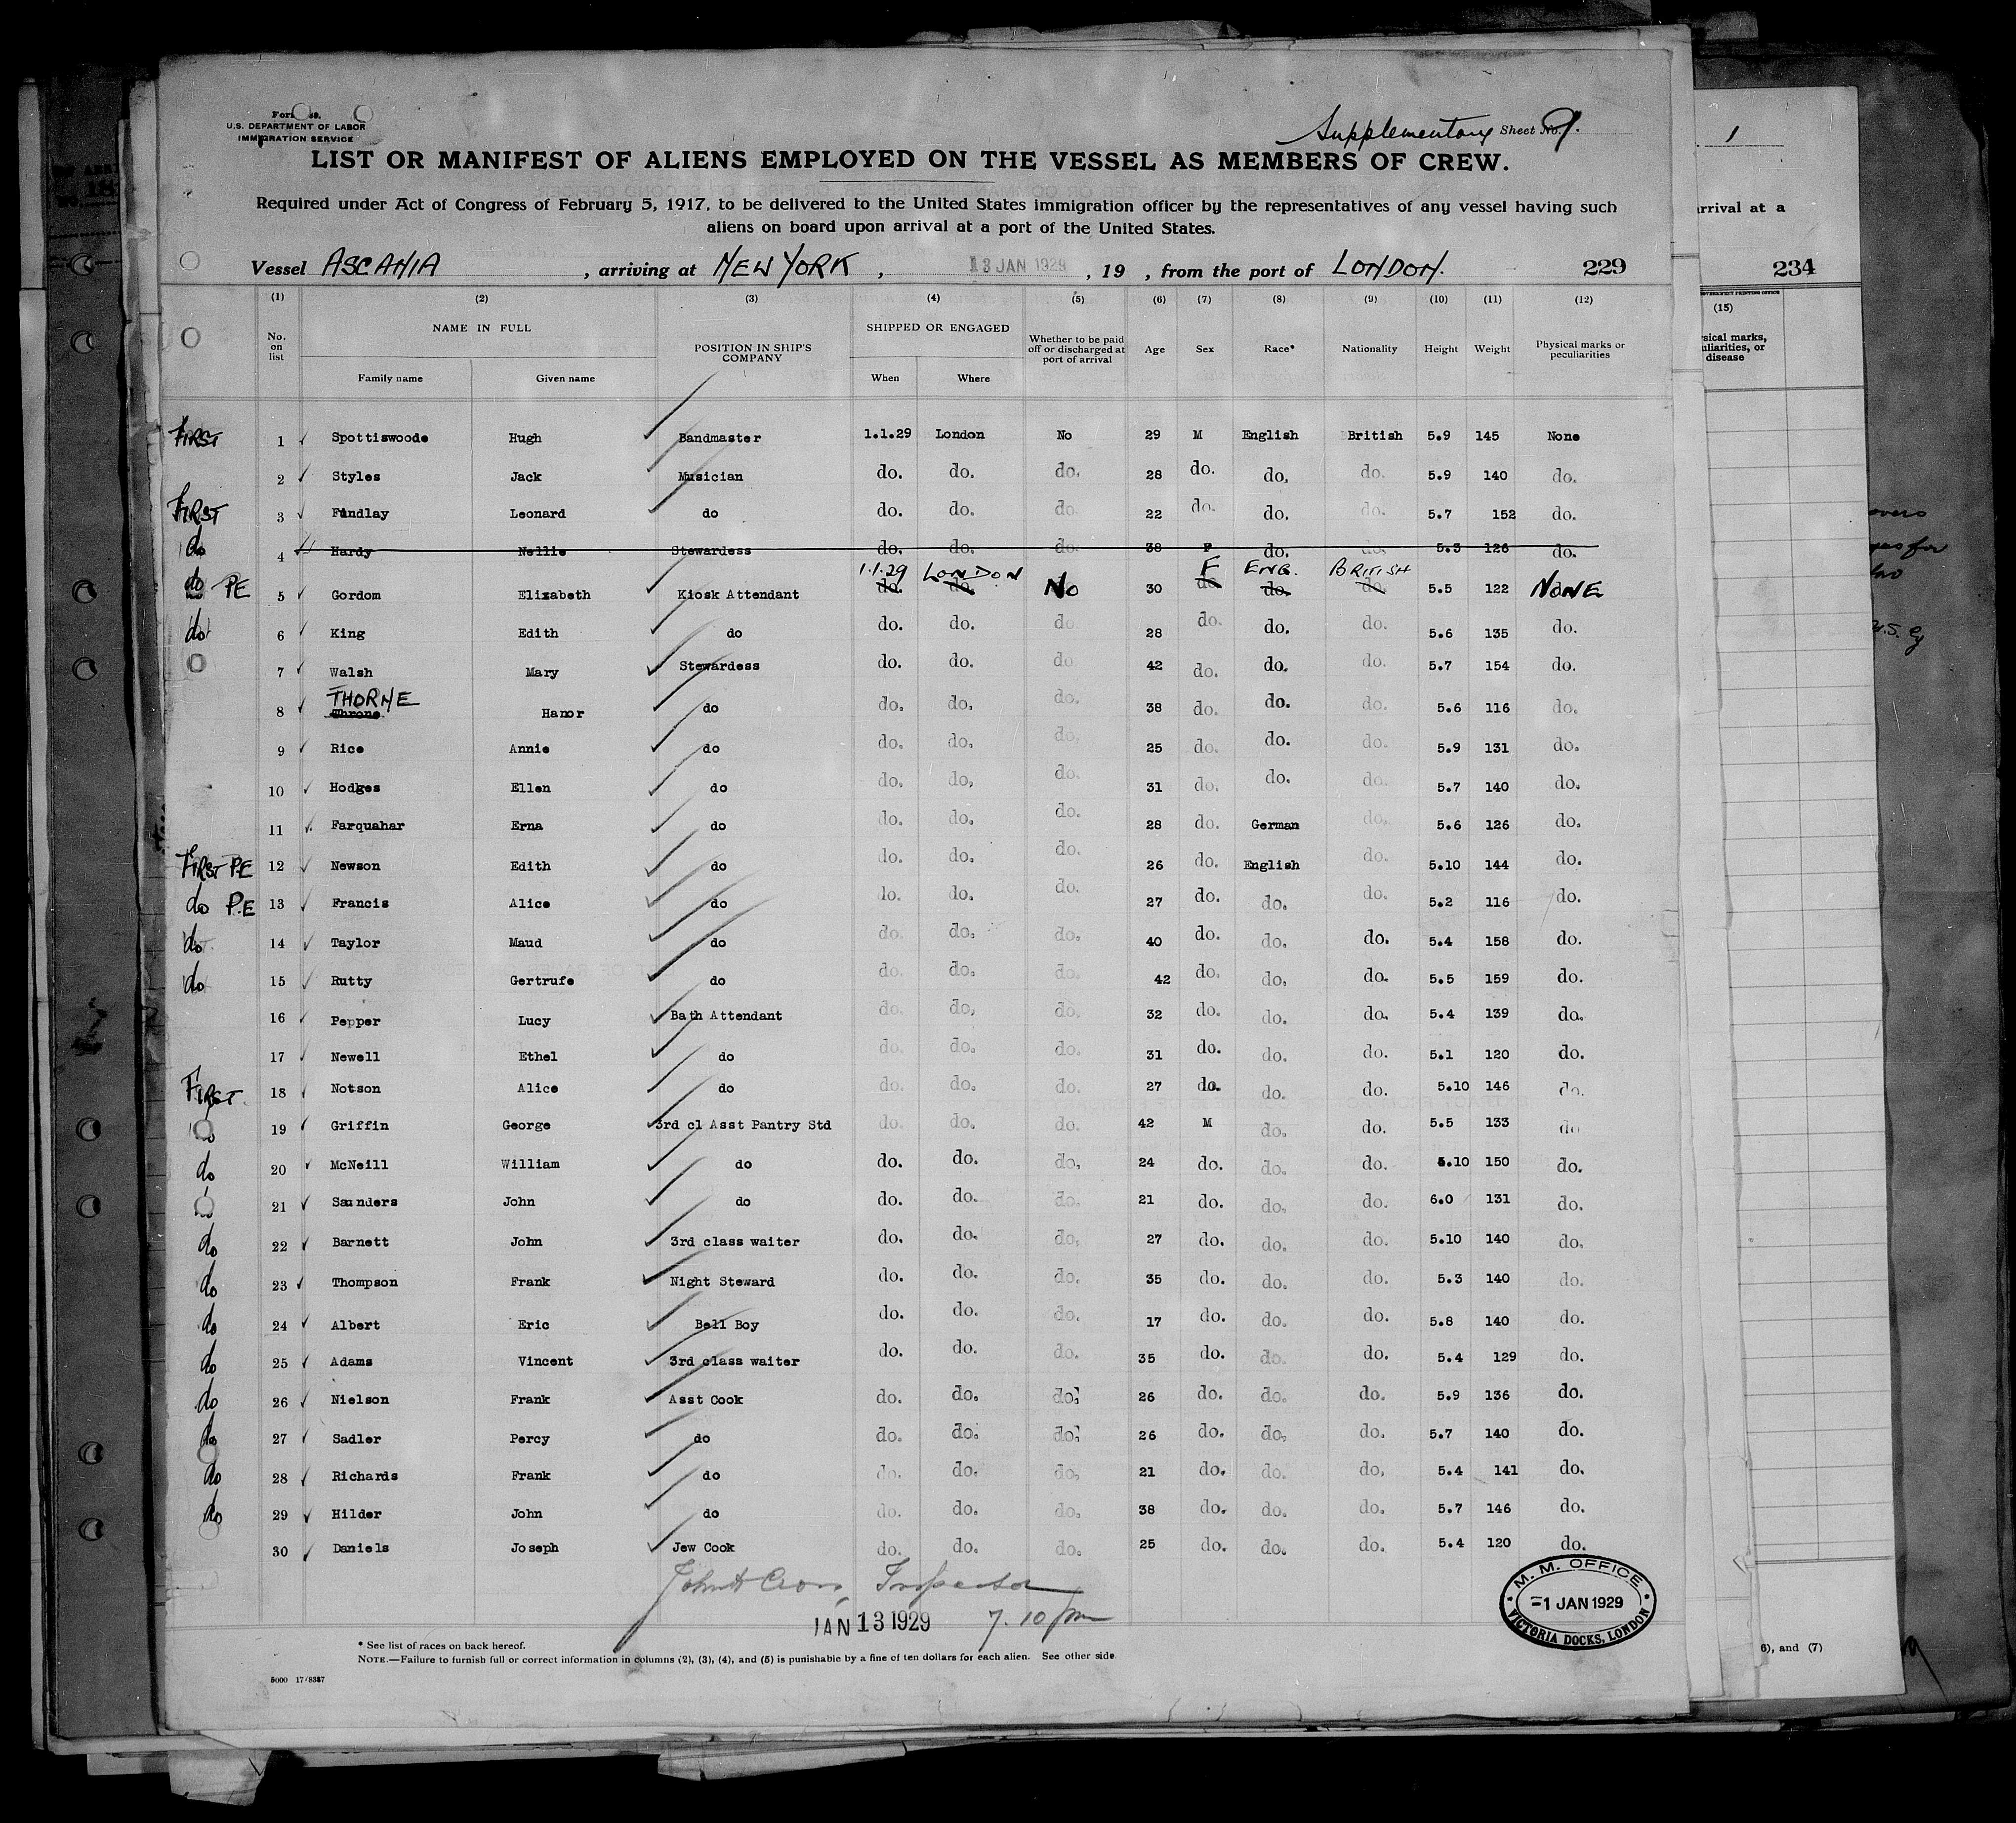 U.S. DEPARTMENT OF LABOR
IMMIGRATION SERVICE
Supplementary Sheet No. 9.
LIST OR MANIFEST OF ALIENS EMPLOYED ON THE VESSEL AS MEMBERS OF CREW.
Required under Act of Congress of February 5, 1917, to be delivered to the United States immigration officer by the representatives of any vessel having such
aliens on board upon arrival at a port of the United States.
Vessel ASCANIA, arriving at NEW YORK, 13 JAN 1929, 19 , from the port of LONDON. 229
(1) (2) (3) (4) (5) (6) (7) (8) (9) (10) (11) (12)
No. on list NAME IN FULL Family name Given name POSITION IN SHIP'S COMPANY SHIPPED OR ENGAGED When Where Whether to be paid off or discharged at port of arrival Age Sex Race* Nationality Height Weight Physical marks or peculiarities
FIRST 1 Spottiswoode Hugh Bandmaster 1.1.29 London No 29 M English British 5.9 145 None
2 Styles Jack Musician do. do. do. 28 do. do. do. 5.9 140 do.
FIRST 3 Findlay Leonard do do. do. do. 22 do. do. do. 5.7 152 do.
do 4 Hardy Nellie Stewardess do. do. do. 38 F do. do. 5.3 126 do.
1.1.29 LONDON F ENG. BRITISH
do PE 5 Gordom Elizabeth Kiosk Attendant do. do. No 30 do do. do. 5.5 122 NONE
do 6 King Edith do do. do. do 28 do. do. do. 5.6 135 do.
7 Walsh Mary Stewardess do. do. do 42 do. do. do. 5.7 154 do.
THORNE
8 Throne Hanor do do. do. do. 38 do. do. do. 5.6 116 do.
9 Rice Annie do do. do. do. 25 do. do. do. 5.9 131 do.
10 Hodges Ellen do do. do. do. 31 do. do. do. 5.7 140 do.
11 Farquahar Erna do do. do. do. 28 do. German do. 5.6 126 do.
FIRST PE 12 Newson Edith do do. do. do. 26 do. English do. 5.10 144 do.
do P.E 13 Francis Alice do do. do. do. 27 do. do. do. 5.2 116 do.
do 14 Taylor Maud do do. do. do. 40 do. do. do. 5.4 158 do.
do 15 Rutty Gertrufe do do. do. do. 42 do. do. do. 5.5 159 do.
16 Pepper Lucy Bath Attendant do. do. do. 32 do. do. do. 5.4 139 do.
17 Newell Ethel do do. do. do. 31 do. do. do. 5.1 120 do.
FIRST. 18 Notson Alice do do. do. do. 27 do. do. do. 5.10 146 do.
do 19 Griffin George 3rd cl Asst Pantry Std do. do. do. 42 M do. do. 5.5 133 do
do 20 McNeill William do do. do. do. 24 do. do. do. 5.10 150 do.
do 21 Saunders John do do. do. do. 21 do. do. do. 6.0 131 do.
do 22 Barnett John 3rd class waiter do. do. do. 27 do. do. do. 5.10 140 do.
do 23 Thompson Frank Night Steward do. do. do. 35 do. do. do. 5.3 140 do.
do 24 Albert Eric Bell Boy do. do. do. 17 do. do. do. 5.8 140 do.
do 25 Adams Vincent 3rd class waiter do. do. do. 35 do. do. do. 5.4 129 do.
do 26 Nielson Frank Asst Cook do. do. do. 26 do. do. do. 5.9 136 do.
do 27 Sadler Percy do do. do. do. 26 do. do. do. 5.7 140 do.
do 28 Richards Frank do do. do. do. 21 do. do. do. 5.4 141 do.
do 29 Hilder John do do. do. do. 38 do. do. do. 5.7 146 do.
30 Daniels Joseph Jew Cook do. do. do. 25 do. do. do. 5.4 120 do.
Inspector
JAN 13 1929 7.10 pm
M. M. OFFICE
-1 JAN 1929
VICTORIA DOCKS, LONDON
* See list of races on back hereof.
NOTE.—Failure to furnish full or correct information in columns (2), (3), (4), and (5) is punishable by a fine of ten dollars for each alien. See other side
5000 17/8327
1
rrival at a
234
(15)
sical marks,
uliarities, or
disease
6), and (7)